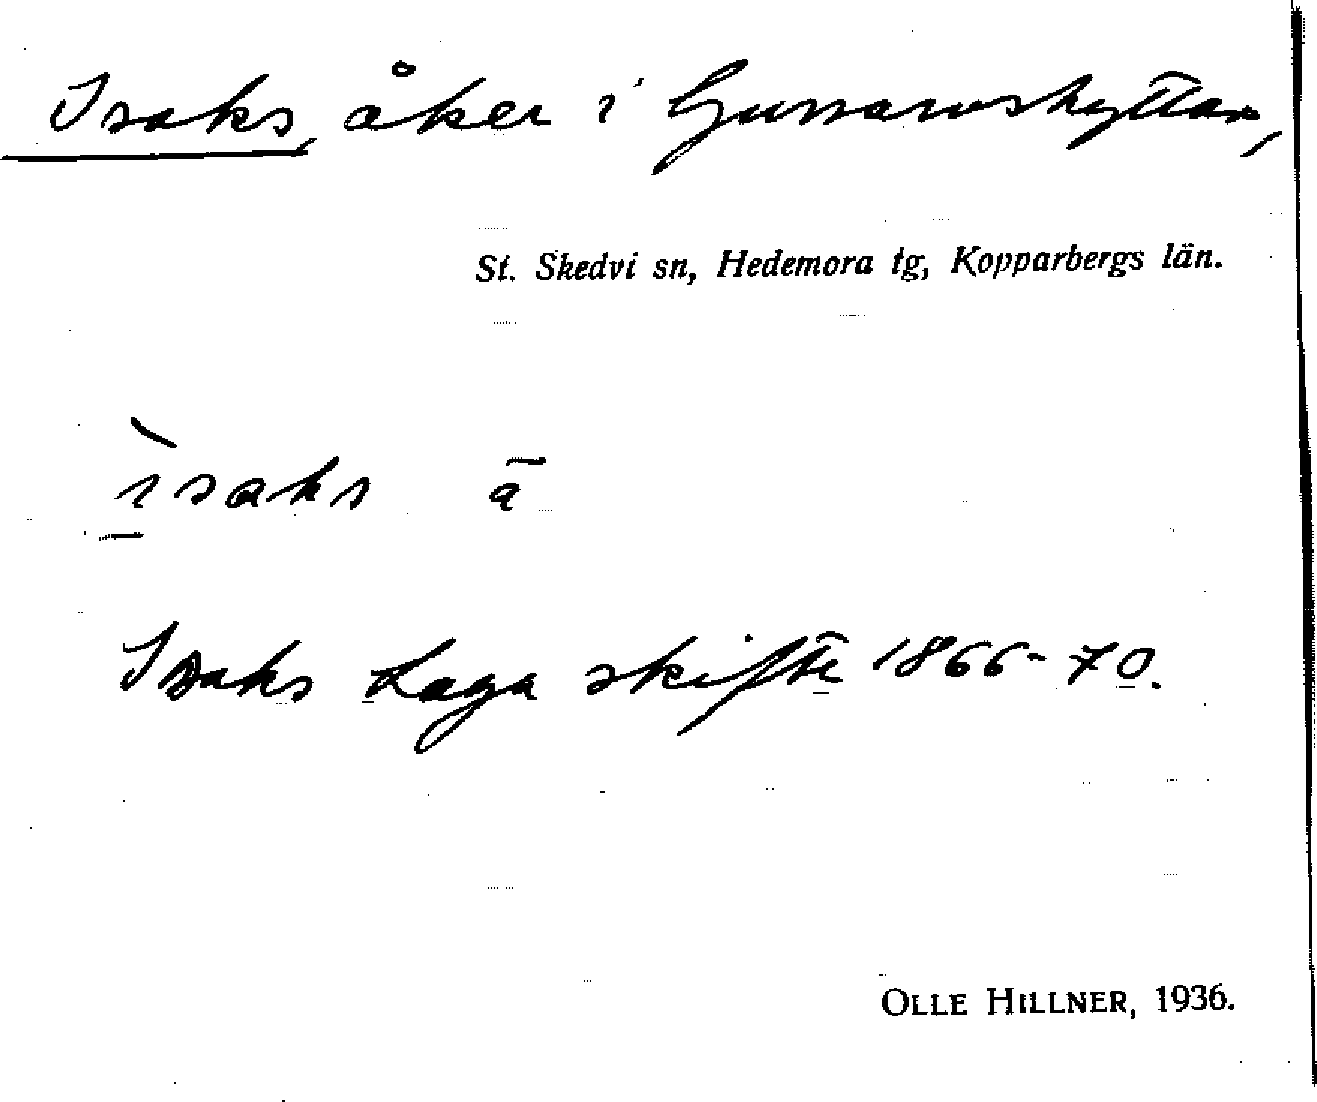 Isaks, åker i Gussarvshyttan,
St. Skedvi sn, Hedemora tg, Kopparbergs län.
ìsaks ā
Isaks Laga skifte 1866-70.
OLLE HILLNER, 1936.